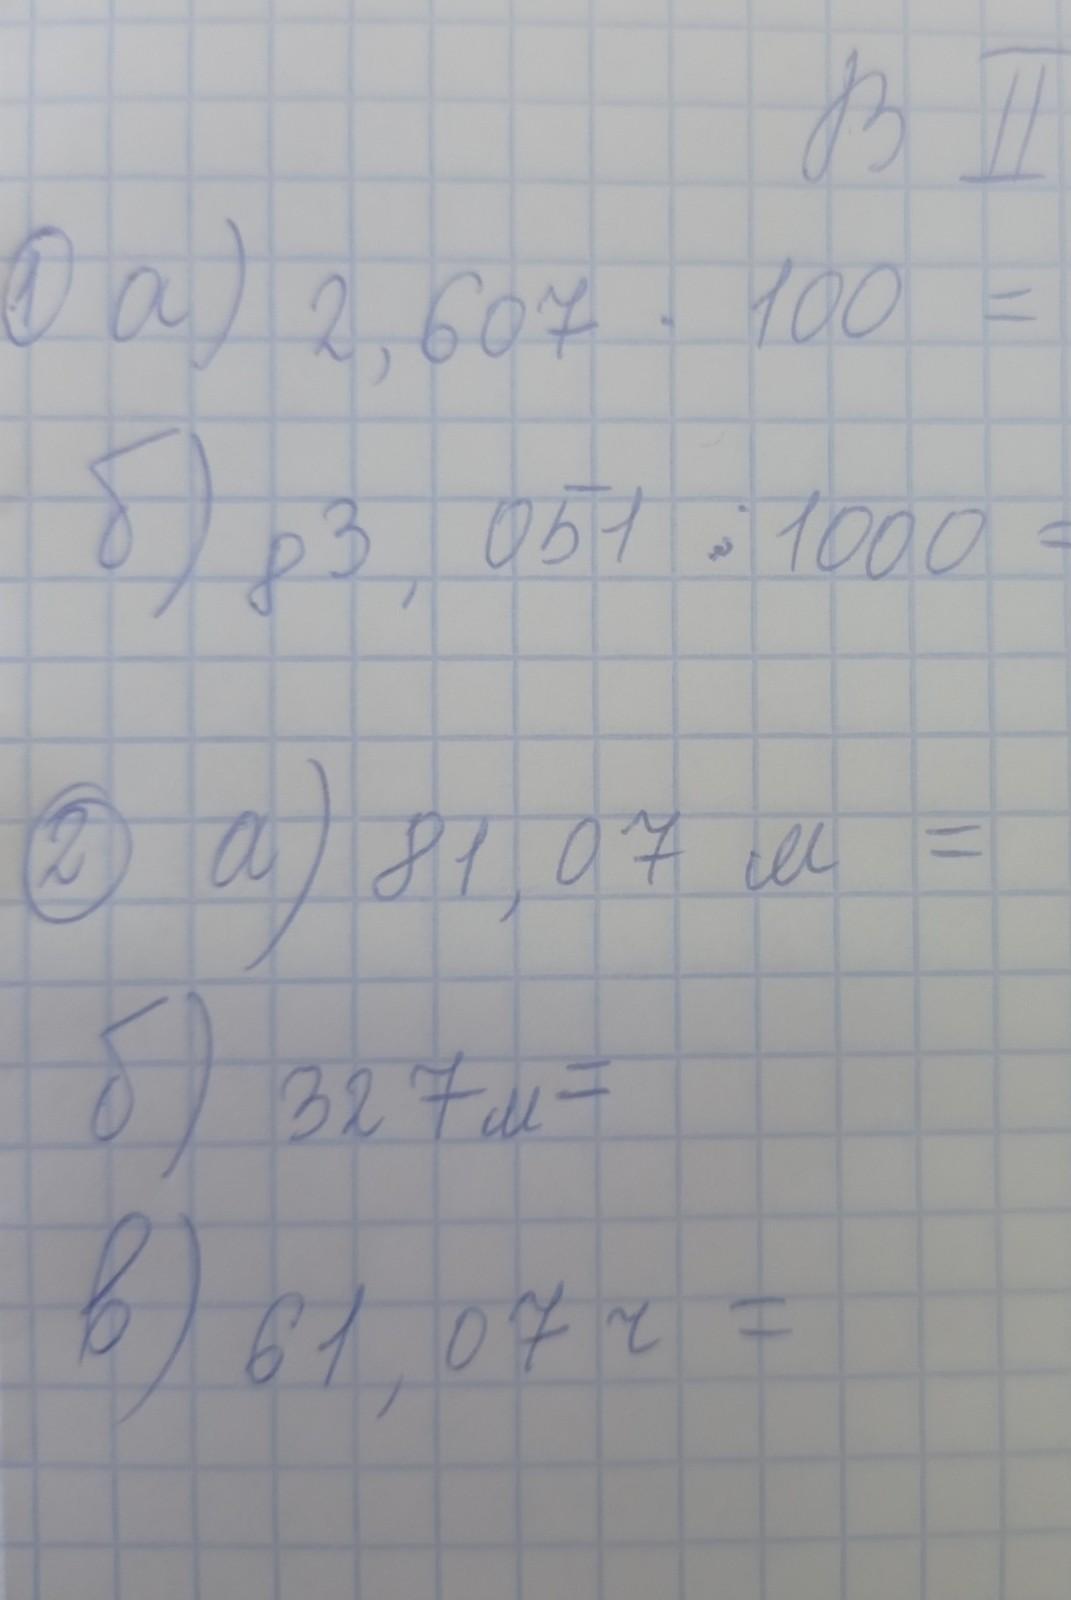 В II
① а) 2,607 · 100 =
б) 83,051 : 1000 =
② а) 81,07 м =
б) 327м=
в) 61,07 г =